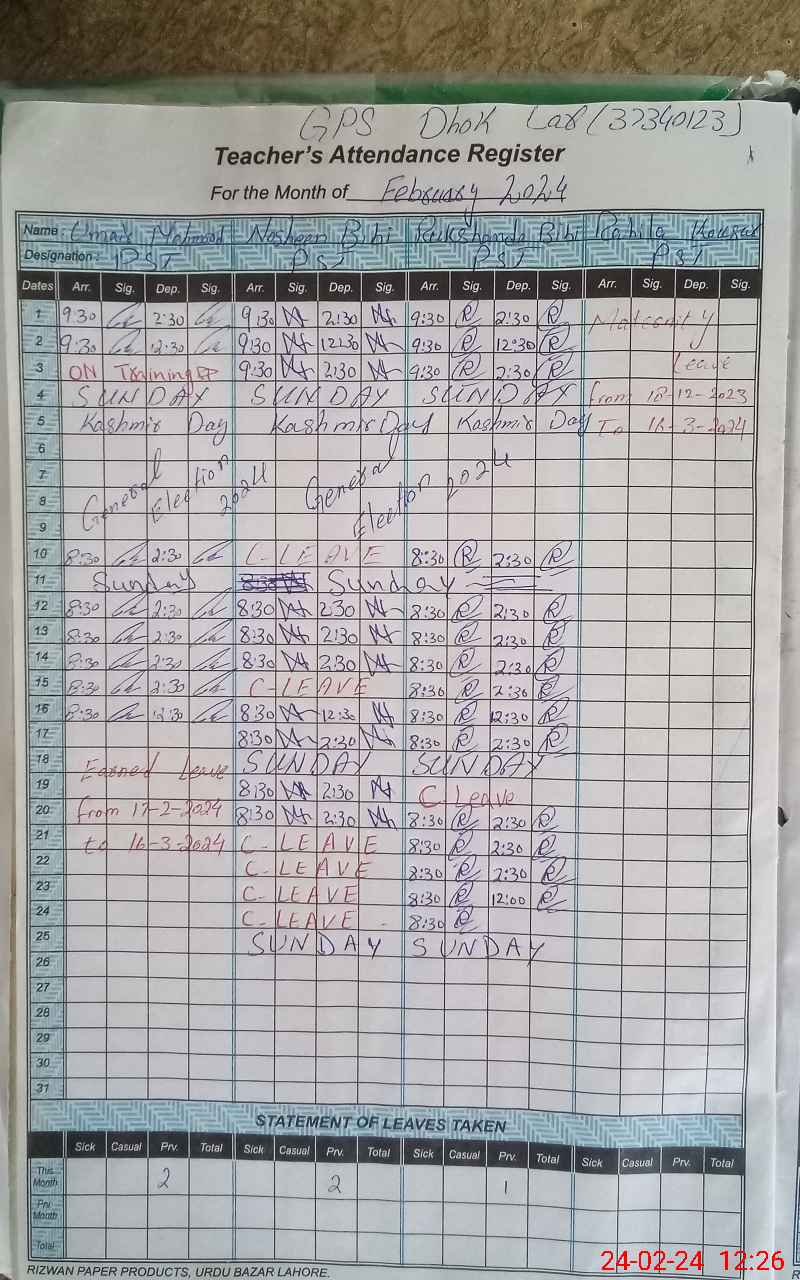 GPS Dhok Lar (37340123)
Teacher's Attendance Register
For the Month of February 2024
Name: Umar Mahmood Nosheen Bibi Rukshanda Bibi Rahila Kousar
Designation: PST PST PST PST
Dates Arr. Sig. Dep. Sig. Arr. Sig. Dep. Sig. Arr. Sig. Dep. Sig. Arr. Sig. Dep. Sig.
1 9:30 2:30 9:30 2:30 9:30 R 2:30 R Maternity
2 9:30 12:30 9:30 12:30 9:30 R 12:30 R
3 ON Training 9:30 2:30 9:30 R 2:30 R Leave
4 SUNDAY SUNDAY SUNDAY From 18-12-2023
5 Kashmir Day Kashmir Day Kashmir Day To 16-3-2024
6
7 General Election 2024 General Election 2024
8
9
10 8:30 2:30 C-LEAVE 8:30 R 2:30 R
11 Sunday Sunday
12 8:30 2:30 8:30 2:30 8:30 R 2:30 R
13 8:30 2:30 8:30 2:30 8:30 R 2:30 R
14 8:30 2:30 8:30 2:30 8:30 R 2:30 R
15 8:30 2:30 C-LEAVE 8:30 R 2:30 R
16 8:30 12:30 8:30 12:30 8:30 R 12:30 R
17 8:30 2:30 8:30 R 2:30 R
18 Earned Leave SUNDAY SUNDAY
19 8:30 2:30 C Leave
20 From 17-2-2024 8:30 2:30 8:30 R 2:30 R
21 to 16-3-2024 C-LEAVE 8:30 R 2:30 R
22 C-LEAVE 8:30 R 2:30 R
23 C-LEAVE 8:30 R 12:00 R
24 C-LEAVE 8:30 R
25 SUNDAY SUNDAY
26
27
28
29
30
31
STATEMENT OF LEAVES TAKEN
Sick Casual Prv. Total Sick Casual Prv. Total Sick Casual Prv. Total Sick Casual Prv. Total
This Month 2 2 1
Prv Month
Total
RIZWAN PAPER PRODUCTS, URDU BAZAR LAHORE.
24-02-24 12:26